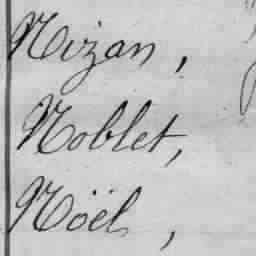 Nizan,
Noblet,
Nöel,